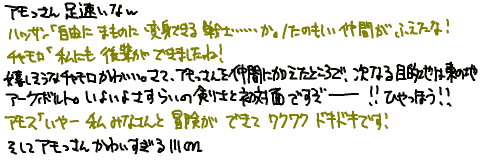 アモっさん 足速いなw
ハッサン「自由に まものに 変身できる 戦士……か。/たのもしい 仲間が ふえたな!
チャモロ「私にも 後輩が できましたね!
嬉しそうなチャモロかわいい。さて、アモっさんを仲間に加えたところで、次なる目的地は東の地
アークボルト。いよいよさすらいの剣士と初対面ですぞ――!!ひゃっほう!!
アモス「いやー 私 みなさんと 冒険が できて ワクワク ドキドキです!
そしてアモっさん かわいすぎる!!!orz